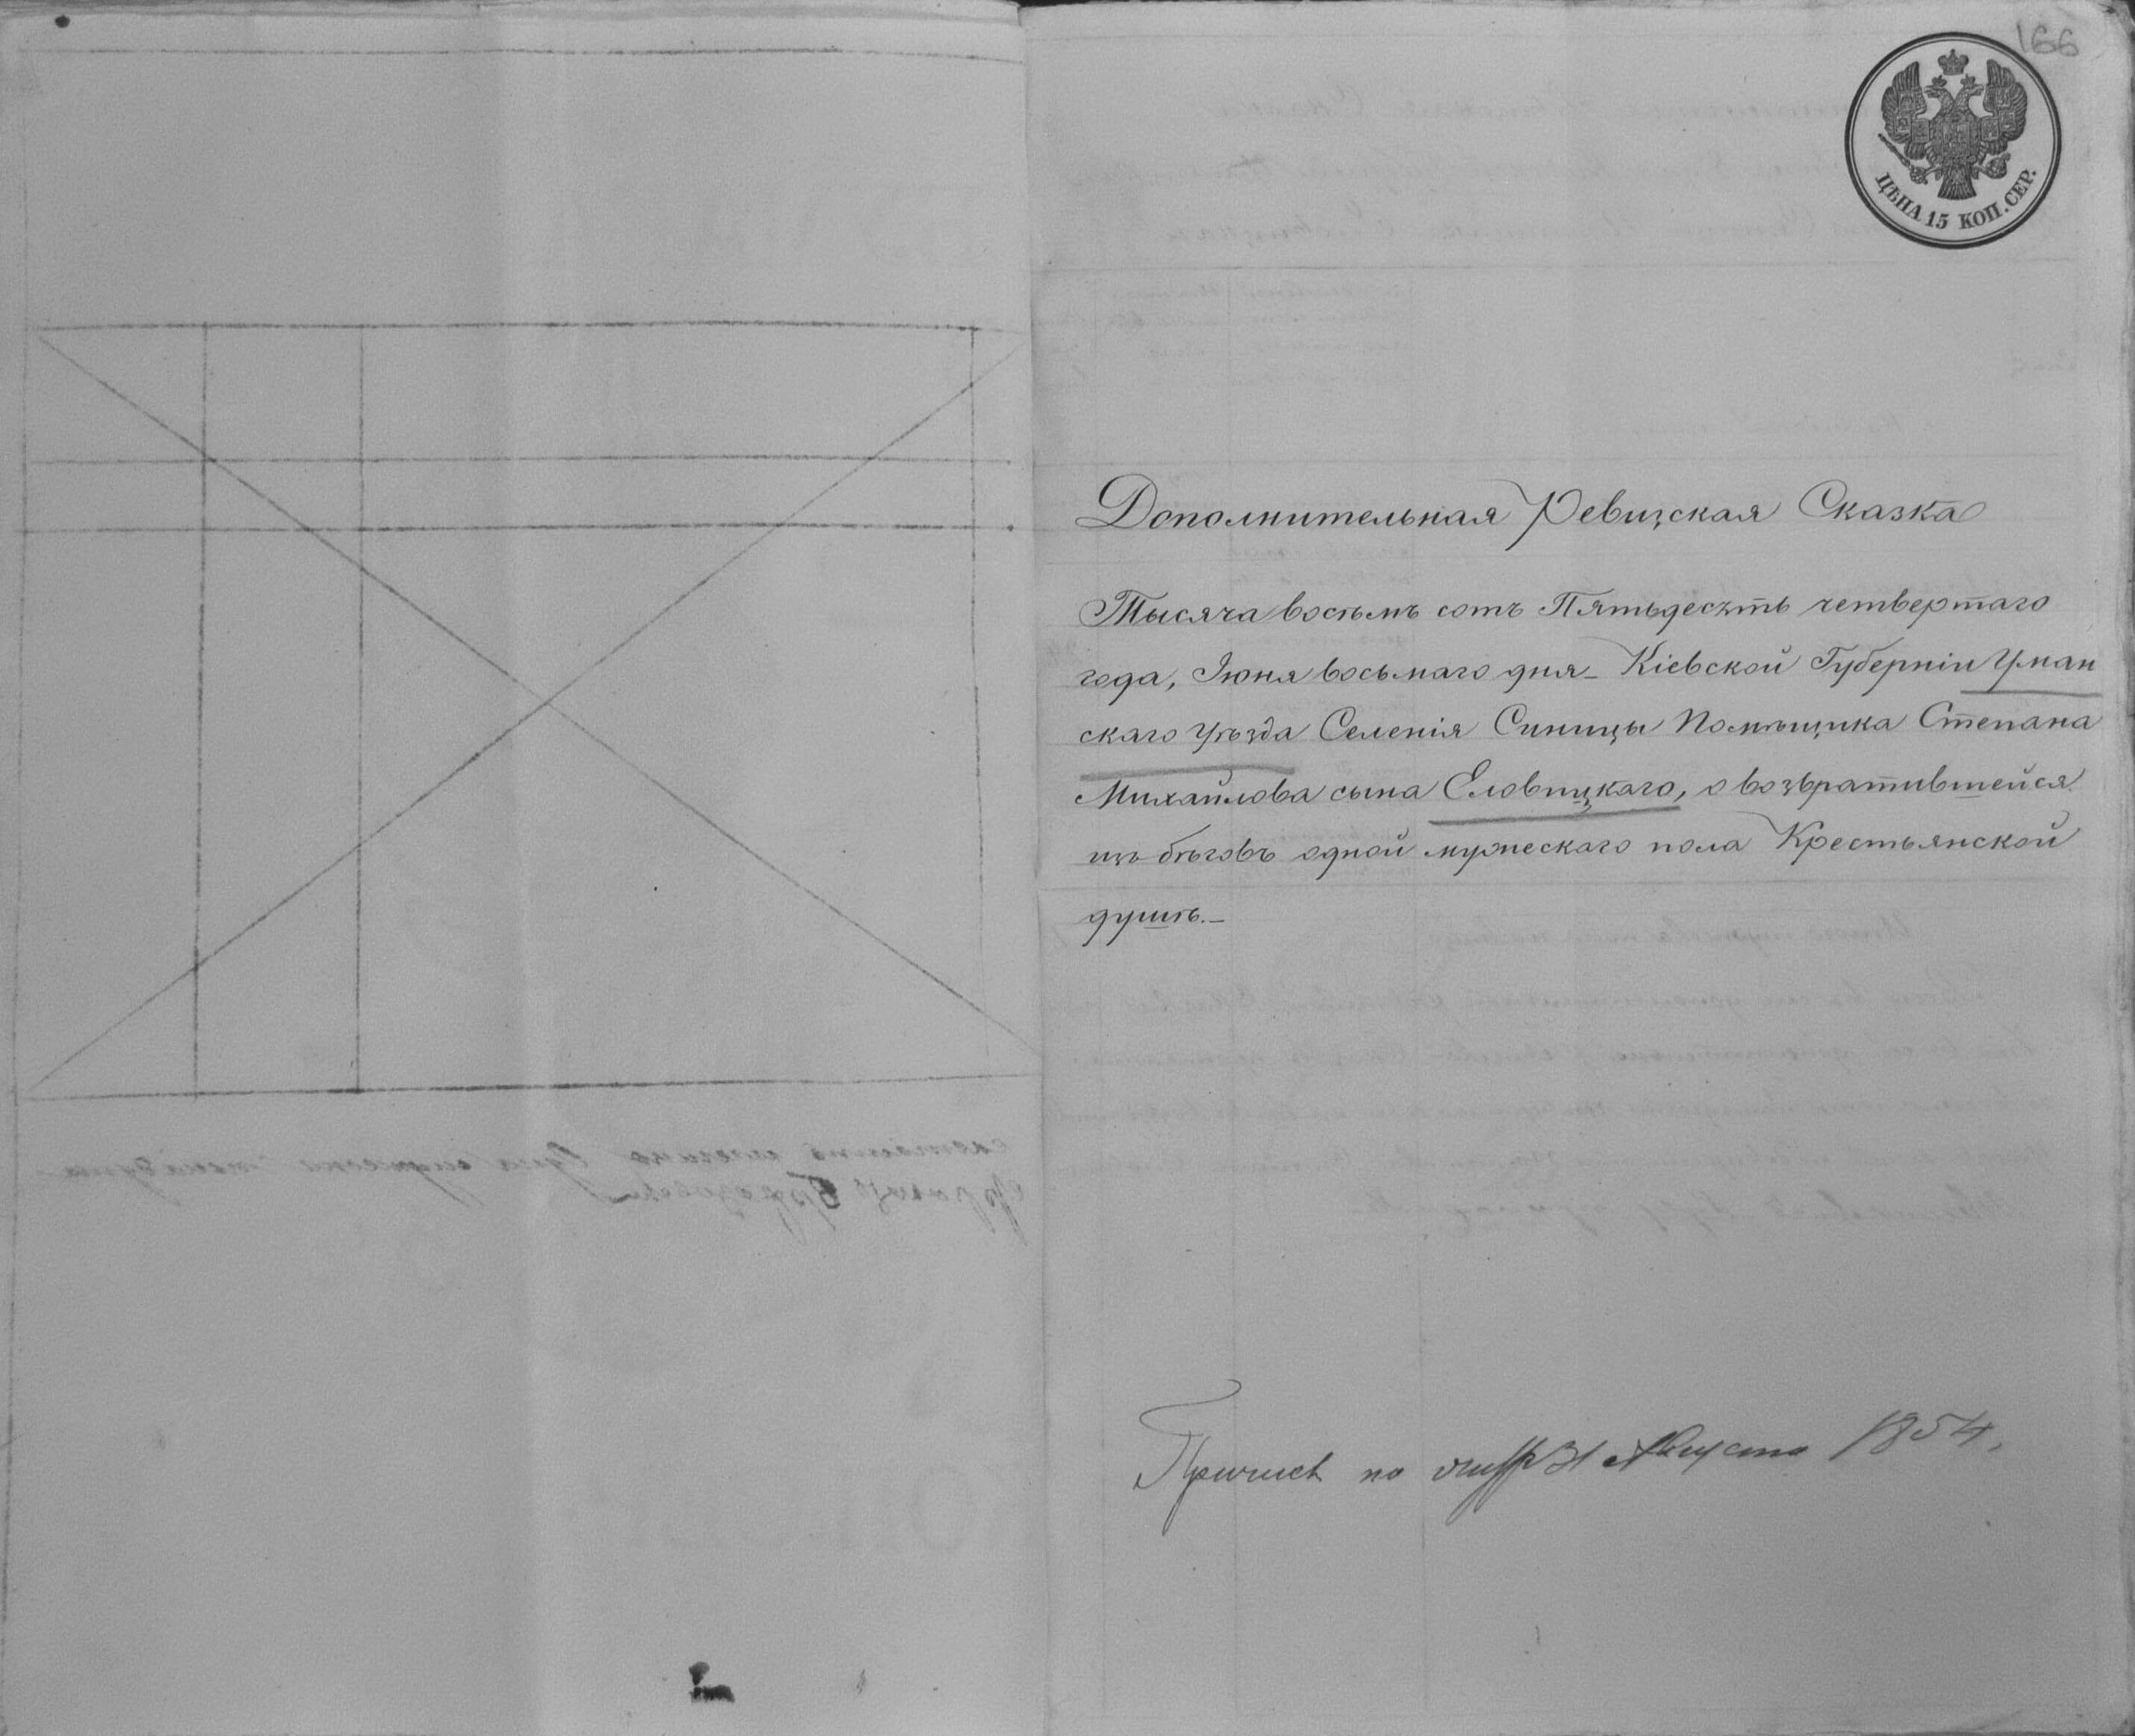 166
ЦѢНА 15 КОП. СЕР.
Дополнительная Ревизская Сказка
Тысяча восемь сотъ Пятьдесятъ четвертаго
года, Іюня восьмаго дня_ Кіевской Губерніи Уман
скаго уѣзда Селенія Синицы Помѣщика Степана
Михайлова сына Еловицкаго, о возвратившейся
изъ бѣговъ одной мужескаго пола Крестьянской
душѣ._
по 31 Августа 1854,